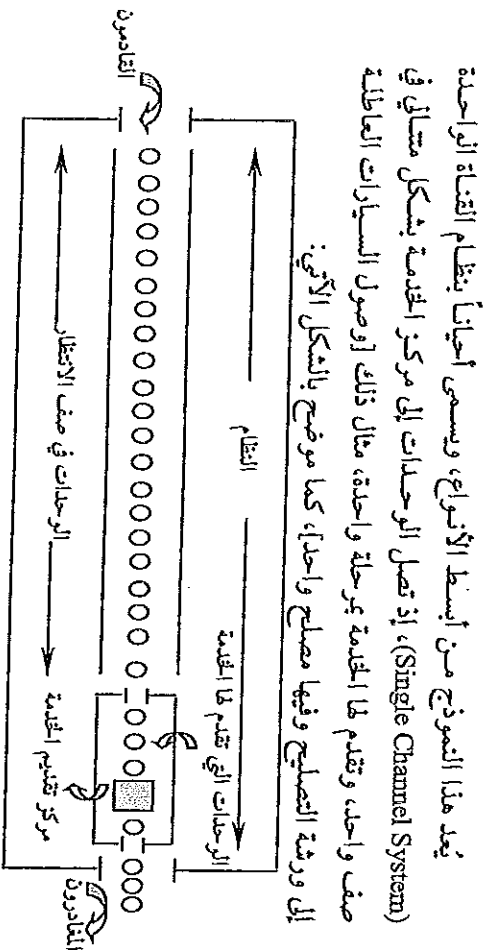 يُعد هذا النموذج من أبسط الأنواع، ويسمى أحياناً بنظام القناة الواحدة
(Single Channel System)، إذ تصل الوحدات إلى مركز الخدمة بشكل متتالي في
صف واحد، وتقدم لها الخدمة بمرحلة واحدة، مثال ذلك [وصول السيارات العاطلة
إلى ورشة التصليح وفيها مصلح واحد]، كما موضح بالشكل الآتي:
النظام
الوحدات التي تقدم لها الخدمة
القادمون
الوحدات في صف الانتظار
مركز تقديم الخدمة
المغادرون